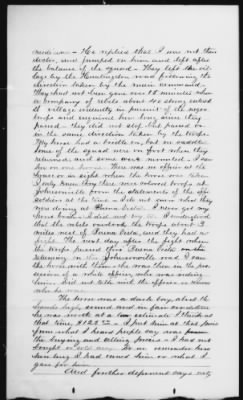 made me – He replied that I was not this
doctor, and jumped on him and left after
the balance of the squad – They left the vil-
lage by the Huntingdon road following the
direction taken by the main command.
They had not been gone over 15 minutes when
a company of rebels about 40 strong entered
the village evidently in pursuit of the negro
troops and inquired how long since they
passed – they did not stop but passed on
in the same direction taken by the troops.
My horse had a bridle on, but no saddle.
Some of the squad were on foot when they
returned, and some were mounted. I saw
him on one horse. There was no officer at the
house or in sight when the horse was taken
I only knew they were colored troops at
Johnsonville from the statements of the
soldiers at the time. I did not hear what they
were doing at Buena Vista. I never got my
horse back. I did not try to. I understood
that the rebels overtook the troops about 3
miles west of Buena Vista, and they had a
fight. The next day after the fight when
the troops passed thro Buena Vista
returning on the Johnsonville road I saw
the horse with them. He was then in the pos-
session of a white officer, who was riding
him. Did not talk with the officer or know
who he was.
The horse was a dark bay, about
years old, sound and in fair condition
he was worth at a low estimate I think at
that time $125 – I put him at that figure
from what I heard people say was
the buying and selling prices – I had not
bought or sold any. Do not remember how
how long I had owned him or what I
gave for him
And further deponent says not